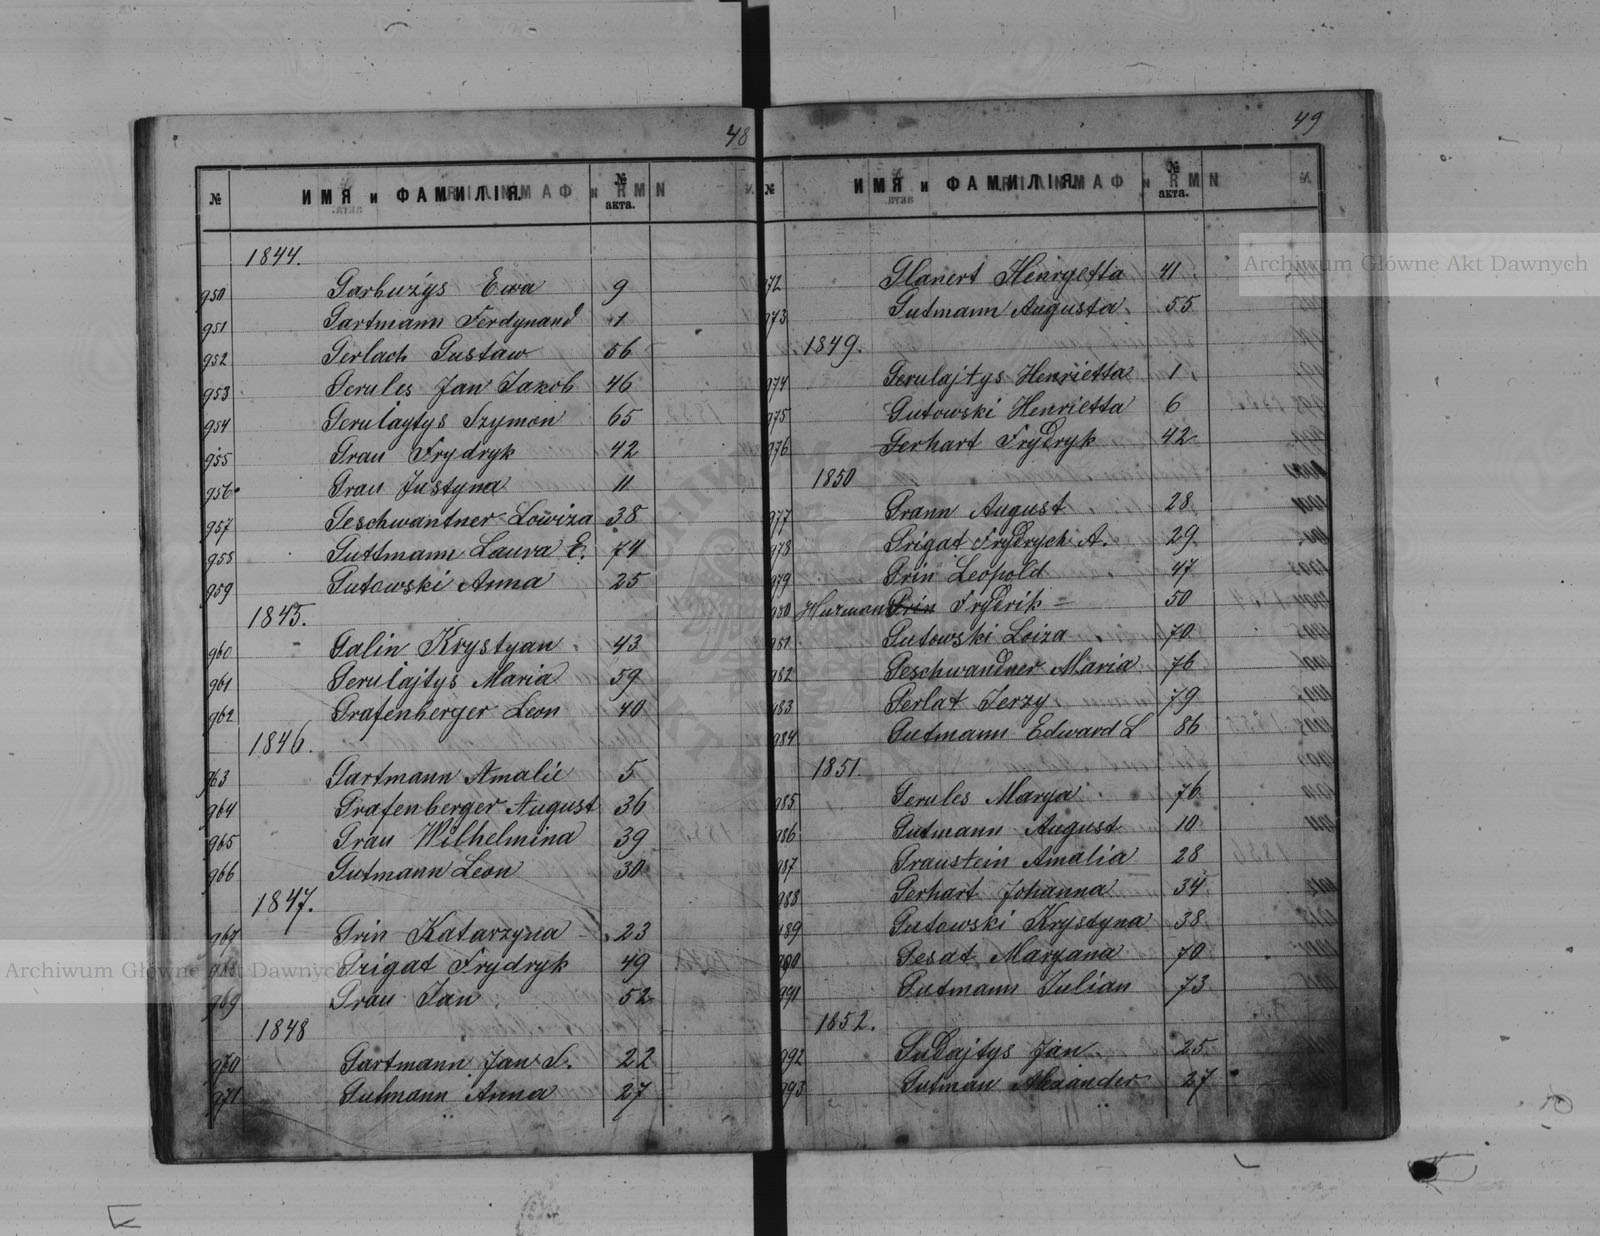 48
№ ИМЯ и ФАМИЛІЯ. № акта.
1844.
950 Garbużys Ewa 9
951 Gartmann Ferdynand 1
952 Gerlach Gustaw 56
953 Gerules Jan Jakob 46
954 Gerulaytys Szymon 65
955 Grau Frydryk 42
956 Grau Justyna 11
957 Geschwantner Lowiza 38
958 Guttmann Laura E. 74
959 Gutowski Anna 25
1845.
960 Galin Krystyan 43
961 Gerulajtys Maria 59
962 Grafenberger Leon 40
1846.
963 Gartmann Amalie 5
964 Grafenberger August 36
965 Grau Wilhelmina 39
966 Gutmann Leon 30
1847.
967 Grin Katarzyna 23
968 Grigat Frydryk 49
969 Grau Jan 52
1848
970 Gartmann Jan S. 22
971 Gutmann Anna 27
49
№ ИМЯ и ФАМИЛІЯ № акта.
972 Glanert Henryetta 41
973 Gutmann Augusta 55
1849.
974 Gerulajtys Henrietta 1
975 Gutowski Henrietta 6
976 Gerhart Frydryk 42
1850
977 Grann August 28
978 Grigat Frydrych A. 29
979 Grin Leopold 47
980 Harmon Grin Frydrik = 50
981 Gutowski Loiza 70
982 Geschwandner Maria 76
983 Gerlat Jerzy 79
984 Gutmann Edward L 86
1851.
985 Gerules Marya 76
986 Gutmann August 10
987 Graustein Amalia 28
988 Gerhart Johanna 34
989 Gutowski Krystyna 38
990 Gesat Maryana 70
991 Gutmann Julian 73
1852.
992 Gudajtys Jan 25
993 Gutman Alexander 27
Archiwum Główne Akt Dawnych
Archiwum Główne Akt Dawnych